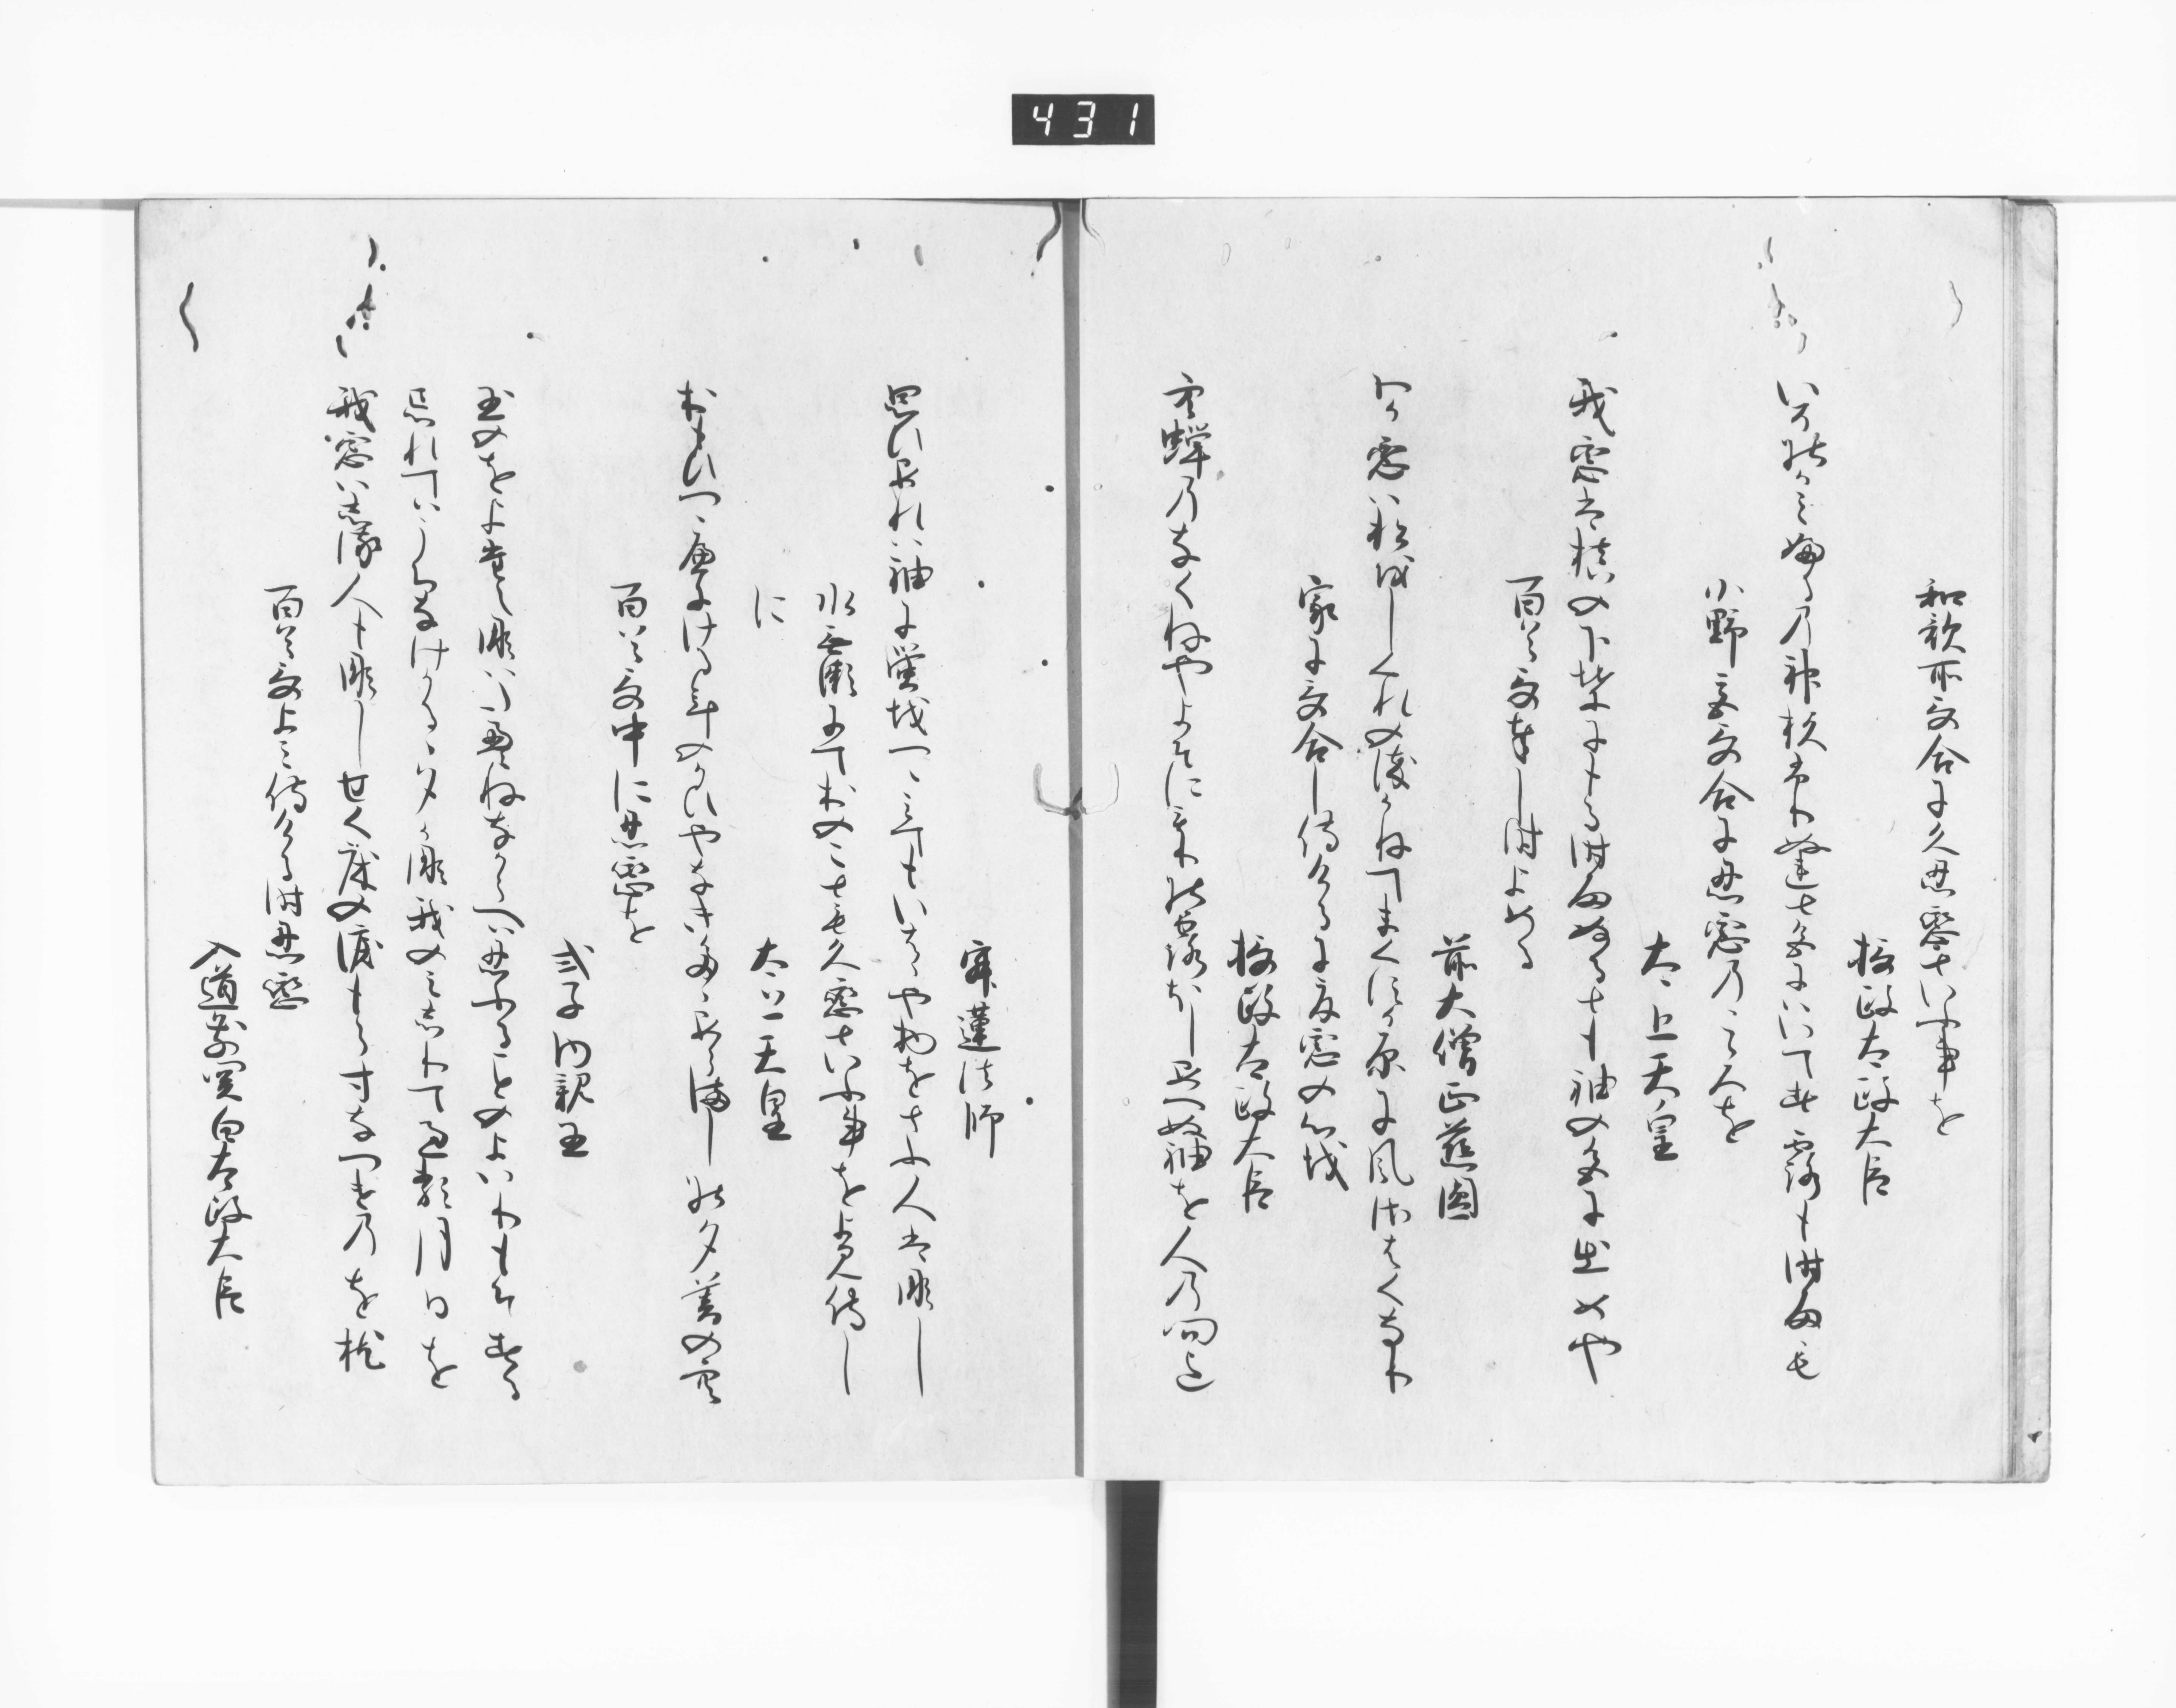 431
和歌所哥合に久忍恋といふ事を
摂政太政大臣
いその神ふるの神杉ふりぬれと色にはいてす露も時雨も
北野宮哥合に忍恋の心を
太上天皇
我恋は槙の下葉にもる時雨ぬるとも袖の色に出めや
百首哥奉し時よめる
前大僧正慈圓
わか恋は松をしくれの染かねてまくすか原に風さはくなり
家に哥合し侍けるに夏恋の心を
摂政太政大臣
空蝉のなくねやよそにもりの露ほしあへぬ袖を人の問まて
寂蓮法師
思ひあれは袖に蛍をつゝみてもいはゝや物をとふ人はなし
水無瀬にてをのことも久恋といふ事をよみ侍し
に
太上天皇
おもひつゝ經にける年のかひやなきたゝあらましの夕暮の空
百首哥中に忍恋を
式子内親王
玉のをよ絶なはたえねなからへは忍ふることのよはりもそする
忘れてはうちなけかるゝ夕かな我のみしりて過る月日を
我恋はしる人もなしせく床の涙もらすなつけのを枕
百首哥よみ侍ける時忍恋
入道前関白太政大臣